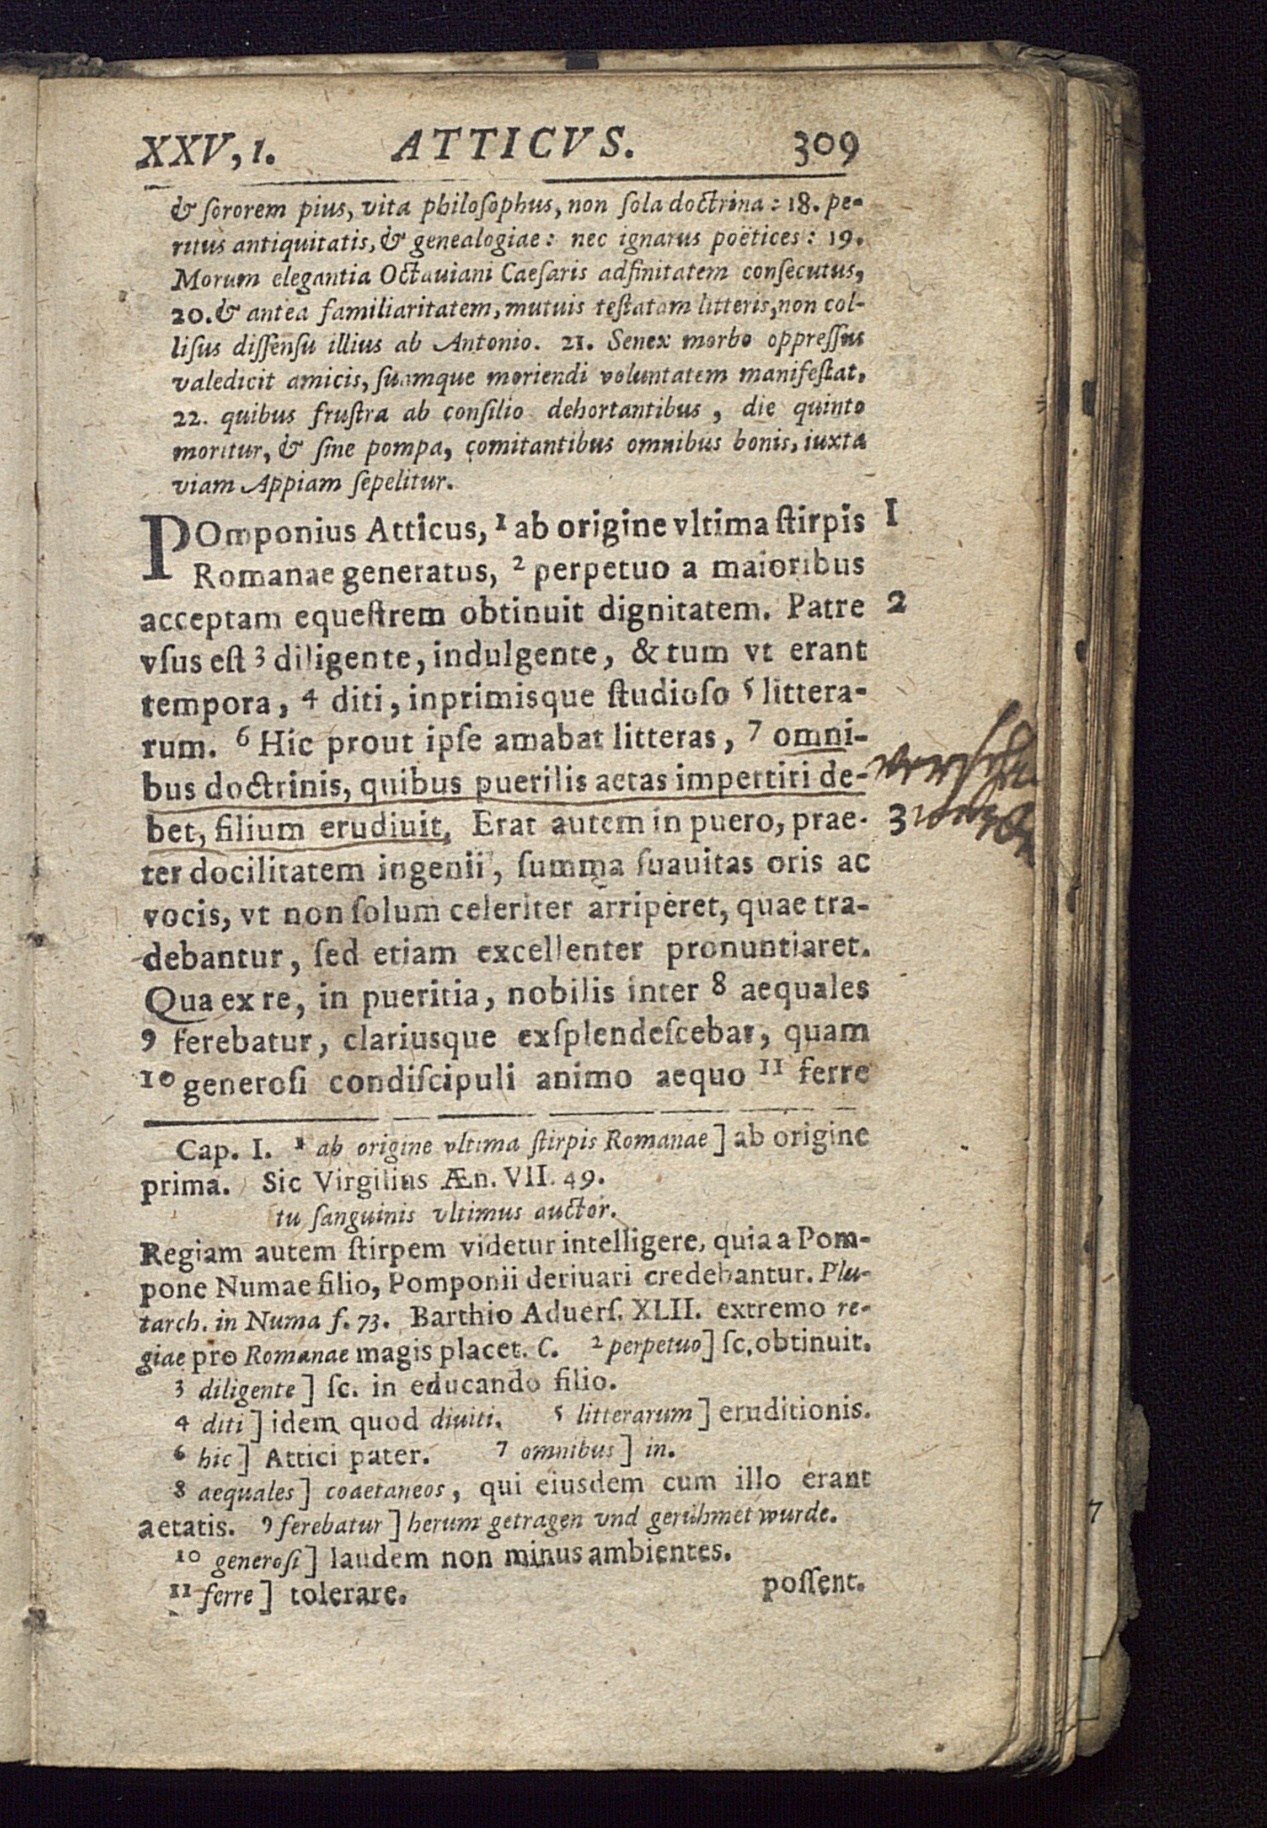 XXV, 1. ATTICVS. 309
& ſororem pius, vita philoſophus, non ſola doctrina: 18. pe-
ritus antiquitatis, & genealogiae: nec ignarus poëtices: 19.
Morum elegantia Octauiani Caeſaris adfinitatem conſecutus,
20. & antea familiaritatem, mutuis teſtatam litteris, non col-
liſus diſſenſu illius ab Antonio. 21. Senex morbo oppreſſus
valedicit amicis, ſuamque moriendi voluntatem manifeſtat.
22. quibus fruſtra ab conſilio dehortantibus, die quinto
moritur, & ſine pompa, comitantibus omnibus bonis, iuxta
viam Appiam ſepelitur.
POmponius Atticus, 1 ab origine vltima ſtirpis 1
Romanae generatus, 2 perpetuo a maioribus
acceptam equeſtrem obtinuit dignitatem. Patre 2
vſus eſt 3 diligente, indulgente, & tum vt erant
tempora, 4 diti, inprimisque ſtudioſo 5 littera-
rum. 6 Hic prout ipſe amabat litteras, 7 omni-
bus doctrinis, quibus puerilis aetas impertiri de-
bet, filium erudiuit. Erat autem in puero, prae- 3
ter docilitatem ingenii, ſumma ſuauitas oris ac
vocis, vt non ſolum celeriter arriperet, quae tra-
debantur, ſed etiam excellenter pronuntiaret.
Qua ex re, in pueritia, nobilis inter 8 aequales
9 ferebatur, clariusque exſplendeſcebat, quam
10 generoſi condiſcipuli animo aequo 11 ferre
Cap. I. 1 ab origine vltima ſtirpis Romanae] ab origine
prima. Sic Virgilius Æn. VII. 49.
tu ſanguinis vltimus auctor.
Regiam autem ſtirpem videtur intelligere, quia a Pom-
pone Numae filio, Pomponii deriuari credebantur. Plu-
tarch. in Numa f. 73. Barthio Aduerſ. XLII. extremo re-
giae pro Romanae magis placet. C. 2 perpetuo] ſc. obtinuit.
3 diligente] ſc. in educando filio.
4 diti] idem quod diuiti. 5 litterarum] eruditionis.
6 hic] Attici pater. 7 omnibus] in.
8 aequales] coaetaneos, qui eiusdem cum illo erant
aetatis. 9 ferebatur] herum getragen vnd gerühmet wurde.
10 generoſi] laudem non minus ambientes.
11 ferre] tolerare. poſſent.
7